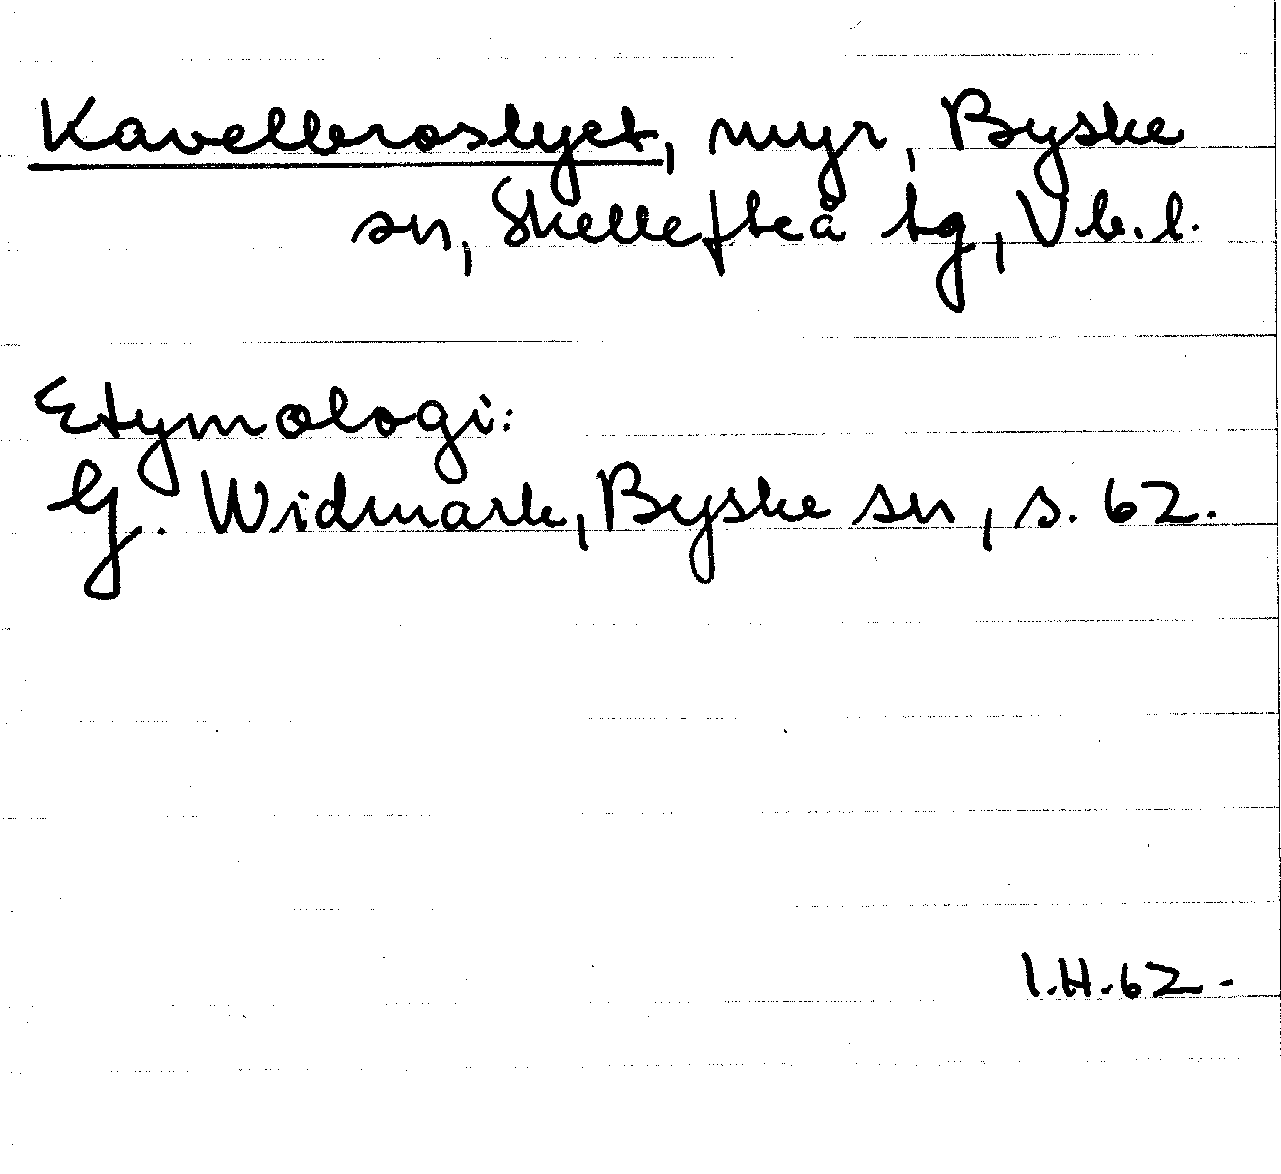 Kavelbroslyet, myr, Byske
sn, Skellefteå tg, Vb.l.
Etymologi:
G. Widmark, Byske sn, s. 62.
I.H.62.